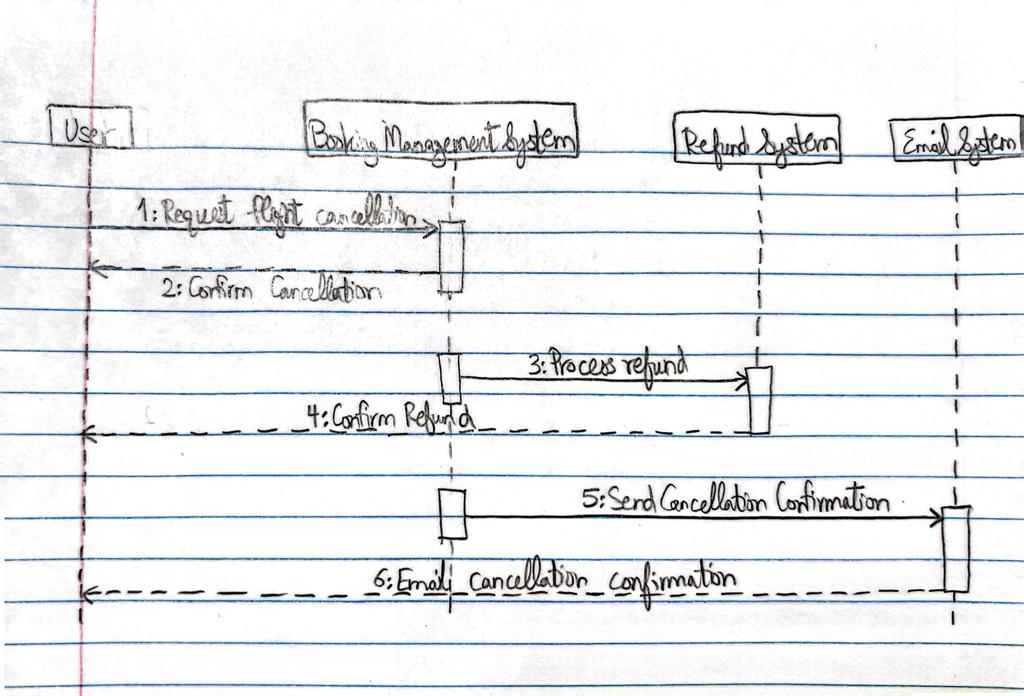 User
Booking Management System
Refund System
Email System
1: Request flight cancellation
2: Confirm Cancellation
3: Process refund
4: Confirm Refund
5: Send Cancellation Confirmation
6: Email cancellation confirmation